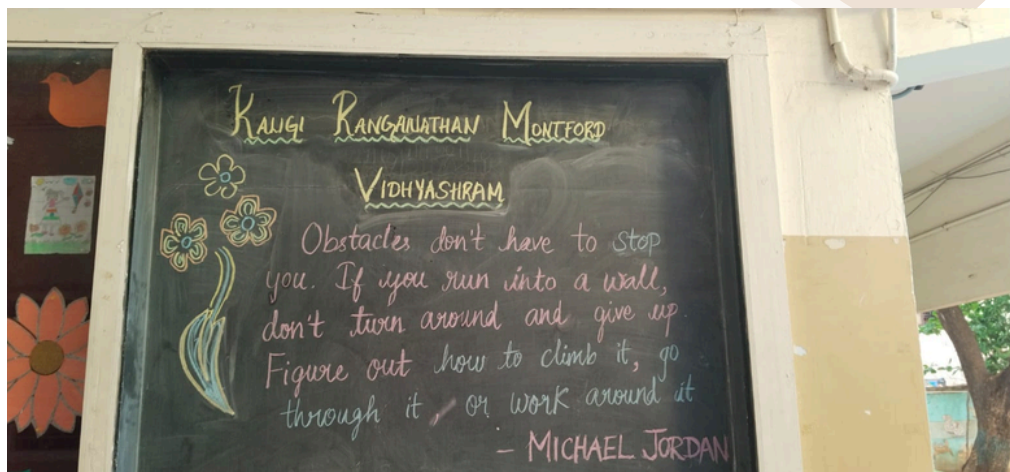 KALIGI RANGANATHAN MONTFORD
VIDHYASHRAM
Obstacles don't have to stop
you. If you run into a wall,
don't turn around and give up.
Figure out how to climb it, go
through it, or work around it
- MICHAEL JORDAN